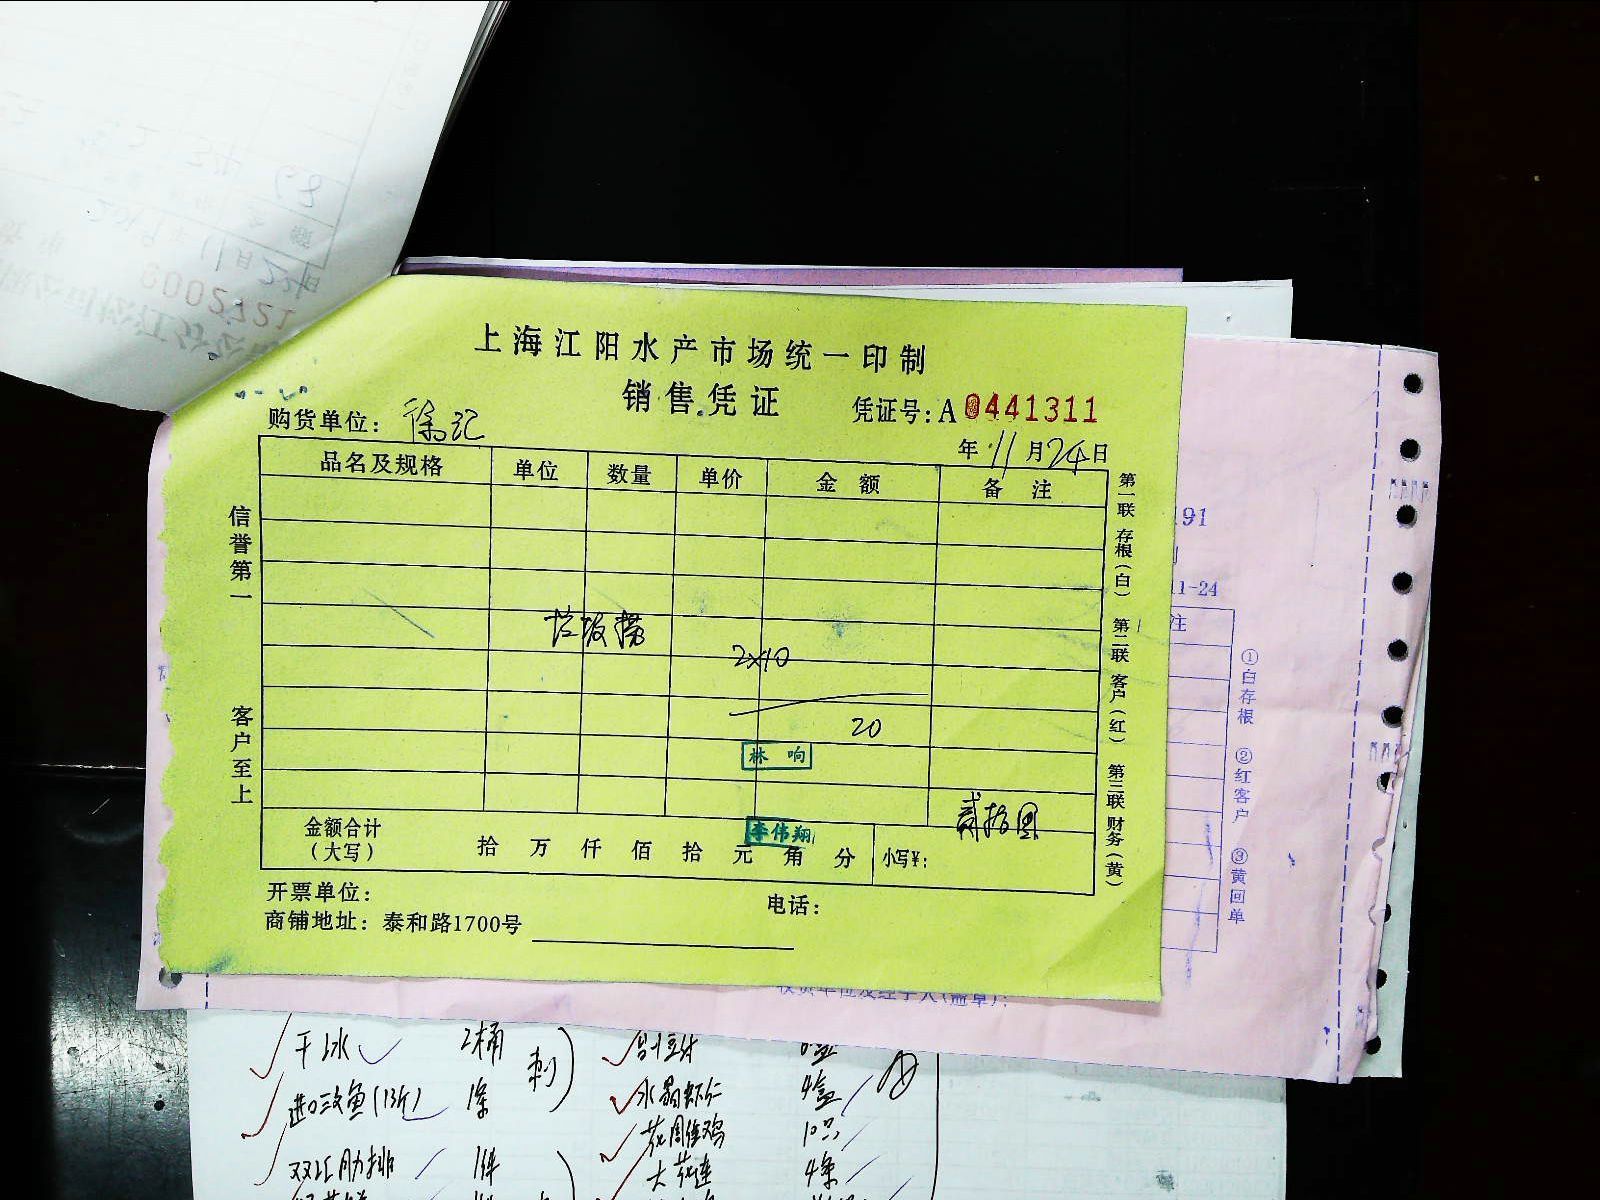 上海江阳水产市场统一印制
销售凭证
凭证号: A 0441311
购货单位: 徐记
年 11 月 24 日
品名及规格 单位 数量 单价 金额 备注
垃圾袋
2×10
20
林响
贰拾圆
金额合计(大写) 拾 万 仟 佰 拾 元 角 分 小写¥:
李伟翔
开票单位:
电话:
商铺地址: 泰和路1700号
信誉第一
客户至上
第一联 存根(白) 第二联 客户(红) 第三联 财务(黄)
191
11-24
注
①白存根 ②红客户 ③黄回单
干冰 2桶
刺
进口三文鱼(13斤) 1条
双汇肋排 1件
水晶虾仁 4盒
10只
大花连 4条
0002721
11月24日
68